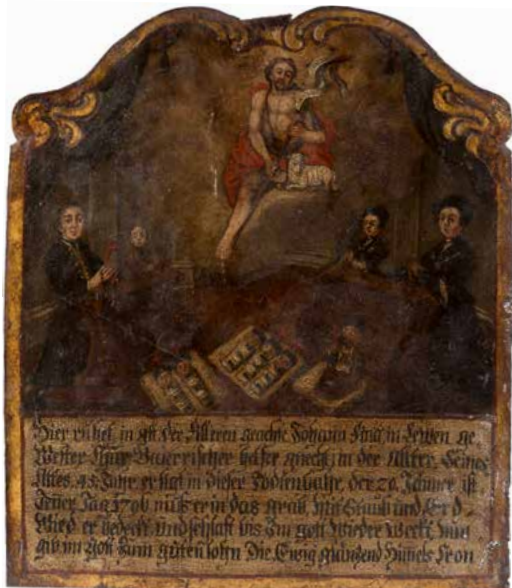 Hier ruhet in gott der Ehren geachte Johann in Leben ge
Wester Chur Baierischer in der Seines
Alters 43 Jahr er ligt in dieser Todtenbahr, der 20 Jenner ist
Jener Tag 1796 mus er in das grab, mit Staub und Erd
Wird er bedeckt und schlaft bis Im gott Wieder Weckt, nun
gib im Gott zum guten lohn Die Ewig glanzend Himels Kron